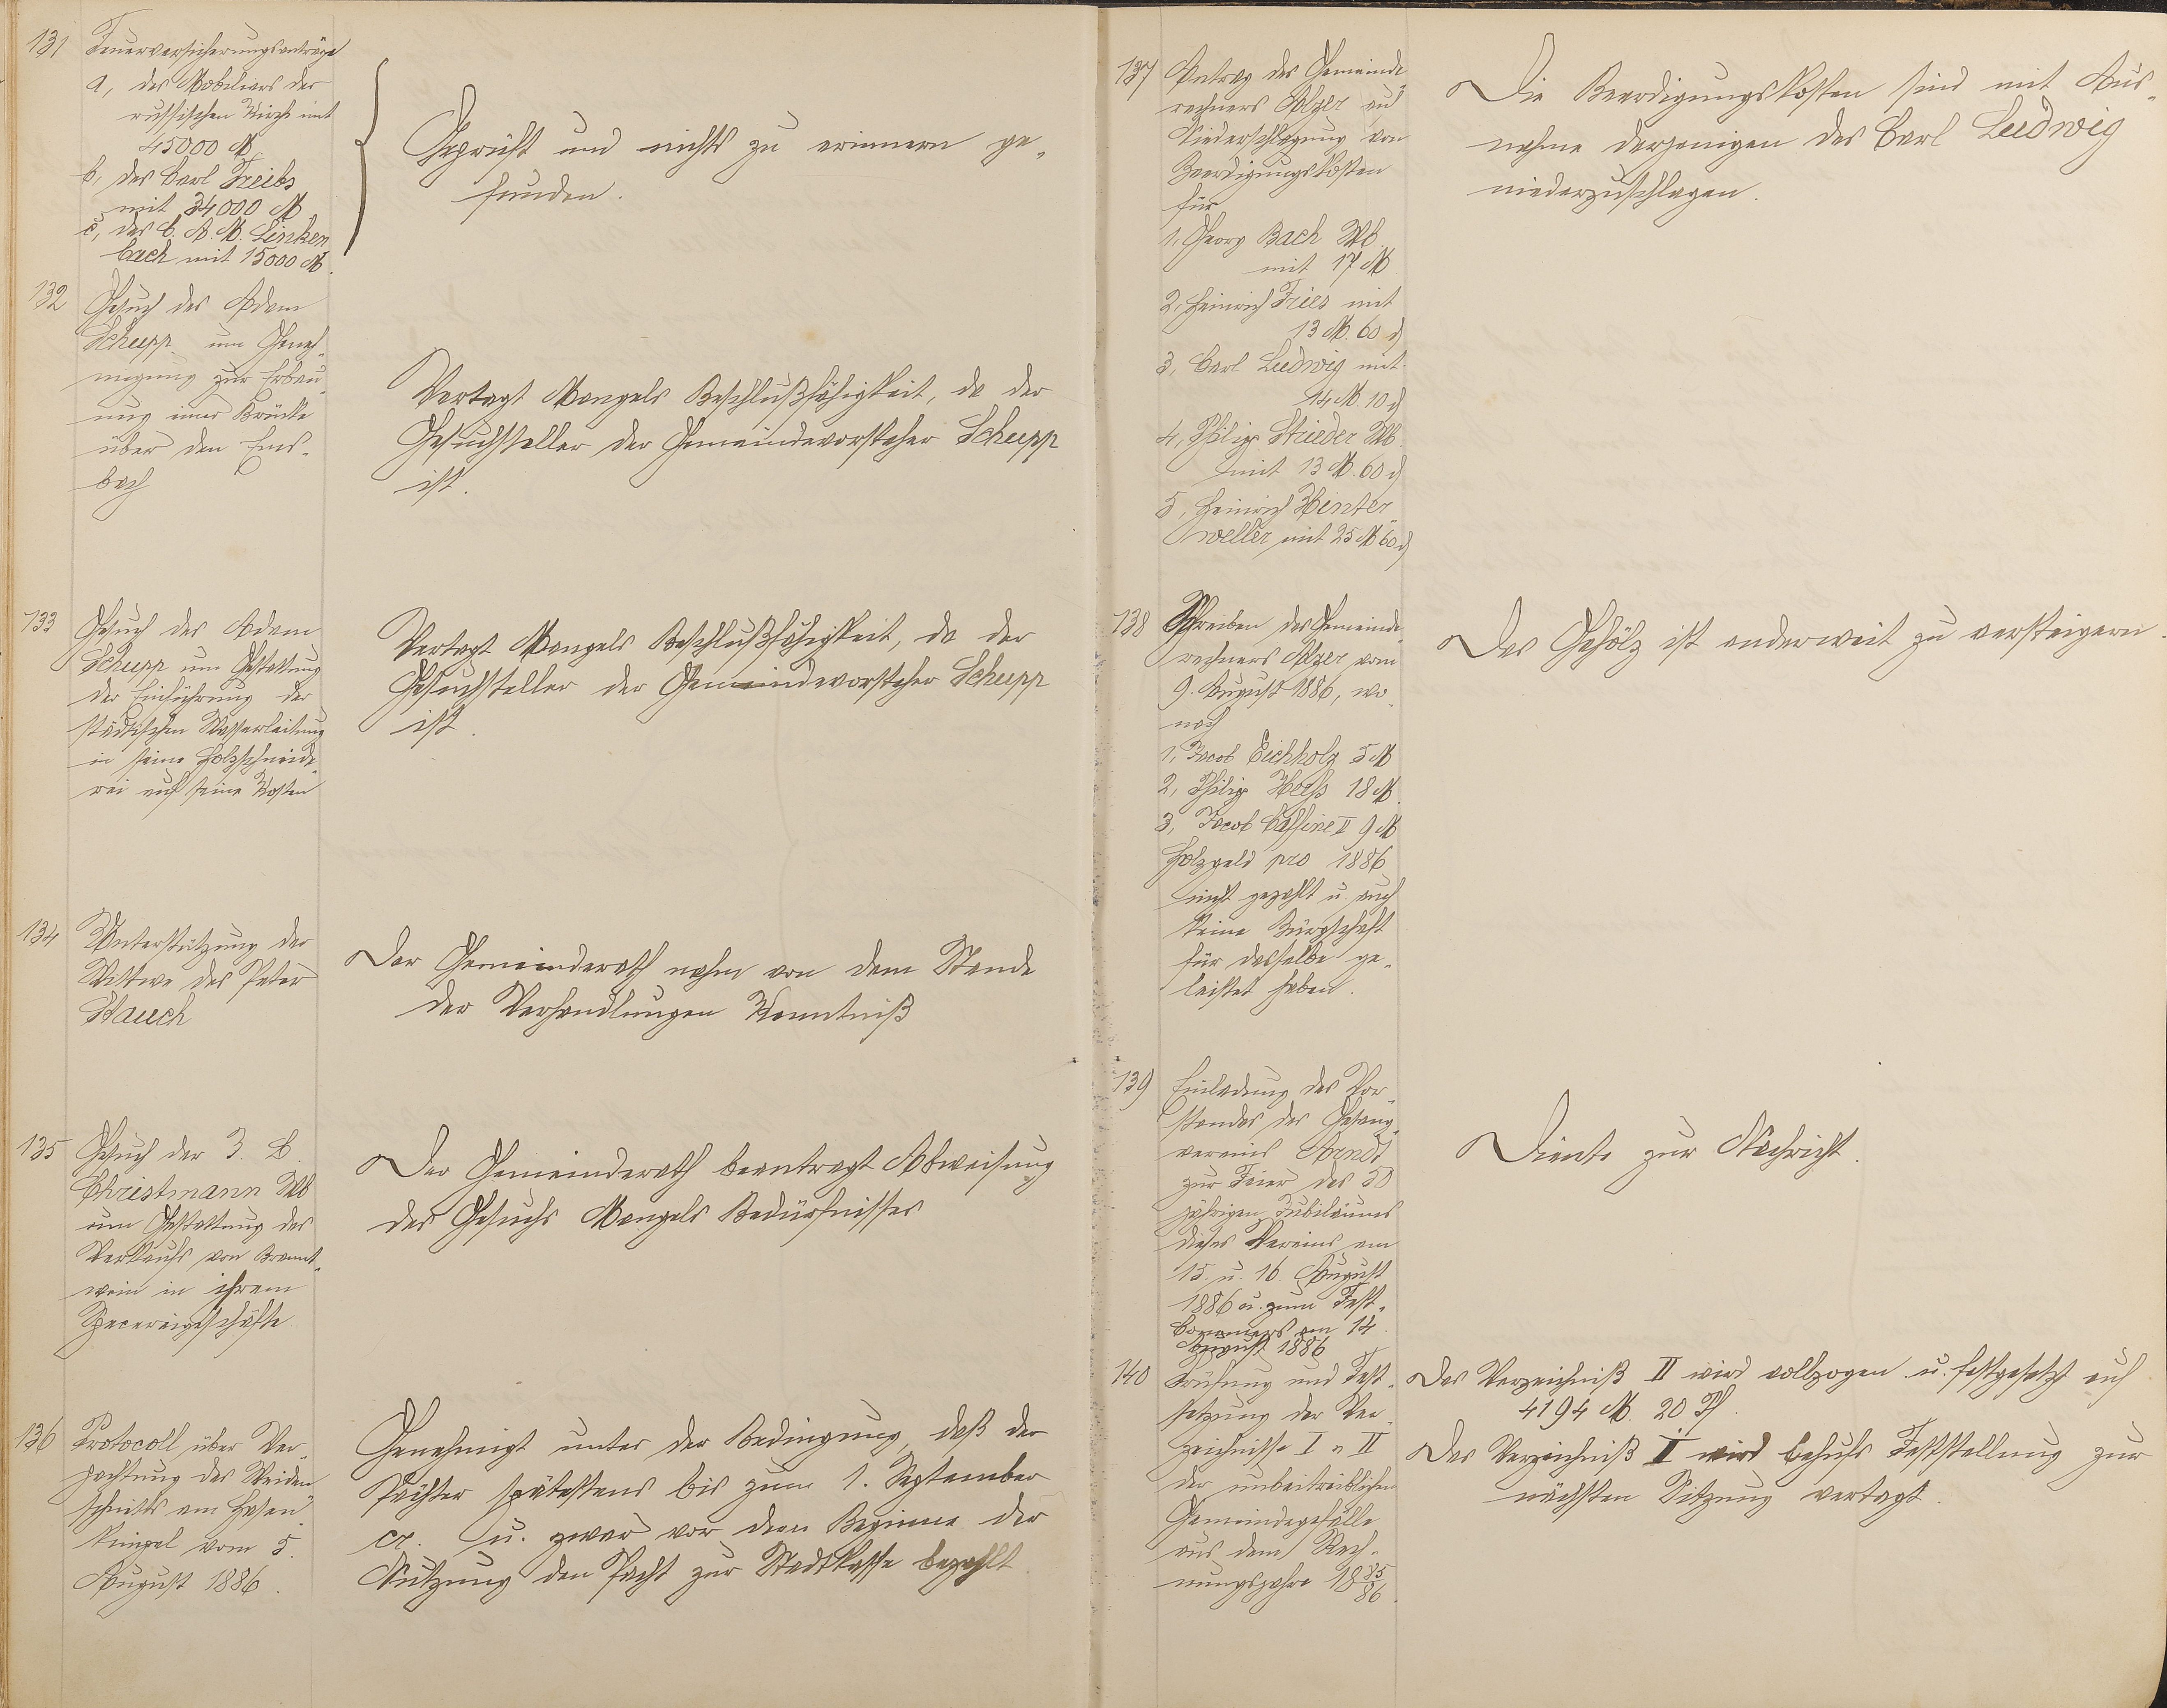 131 Feuerversicherungsanträge
a, des Mobiliars der
russischen Kirche mit
45000 M
b, des Carl Freibs
mit 34000 M
c, des C. A. M. Linken
bach mit 15000 M.
Geprüft und nichts zu erinnern ge-
funden.
132 Gesuch des Adam
Schupp um Geneh-
migung zur Erbau-
ung einer Brücke
über den Ems-
bach
Vertagt Mangels Beschlußfähigkeit, da der
Gesuchsteller der Gemeindevorsteher Schupp
ist.
133 Gesuch des Adam
Schupp um Gestattung
der Einführung der
städtischen Wasserleitung
in seine Holzschneide-
rei auf seine Kosten
Vertagt Mangels Beschlußfähigkeit, da der
Gesuchsteller der Gemeindevorsteher Schupp
ist.
134 Unterstützung der
Wittwe des Peter
Stauch
Der Gemeinderath nahm von dem Stande
der Verhandlungen Kenntniß
135 Gesuch der J. B.
Christmann Wb
um Gestattung des
Verkaufs von Brannt-
wein in ihrem
Spezereigeschäfte
Der Gemeinderath beantragt Abweisung
des Gesuchs Mangels Bedürfnisses
136 Protocoll über Ver-
pachtung des Weiden-
schnitts am Hasen-
kümpel vom 5.
August 1886.
Genehmigt unter der Bedingung, daß der
Pächter spätestens bis zum 1. September
cr. u. zwar vor dem Beginne der
Nutzung den Pacht zur Stadtkasse bezahlt
137 Antrag des Gemeinde-
rechners Balzer auf
Niederschlagung von
Beerdigungskosten
für
1, Georg Bach Wb.
mit 17 M
2, Heinrich Fries mit
13 M. 60 ₰
3, Carl Ludwig mit
14 M. 10 ₰
4, Philipp Strieder Wb.
mit 13 M. 60 ₰
5, Heinrich Hinter-
weller mit 25 M 60 ₰
Die Beerdigungskosten sind mit Aus-
nahme derjenigen des Carl Ludwig
niederzuschlagen.
138 Schreiben des Gemeinde-
rechners Balzer vom
9. August 1886, wo-
nach
1, Jacob Eichholz 5 M
2, Philipp 18 M
3, Jacob Caffine II 9 M
Holzgeld pro 1886
nicht gezahlt u. auch
keine Bürgschaft
für dasselbe ge-
leistet haben.
Das Gehölz ist anderweit zu versteigern.
139 Einladung des Vor-
standes des Gesang-
vereins Arndt
zur Feier des 50
jährigen Jubiläums
dieses Vereins am
15. u. 16. August
1886 u. zum Fest-
Commers am 14.
August 1886
Diente zur Nachricht.
140 Prüfung und Fest-
setzung der Ver-
zeichnisse I u II
der unbeitreiblichen
Gemeindegefälle
aus dem Rech-
nungsjahre 1885/86.
Das Verzeichniß II wird vollzogen u. festgesetzt auf
4194 M. 20 Pf.
Das Verzeichniß I wird behufs Feststellung zur
nächsten Sitzung vertagt.